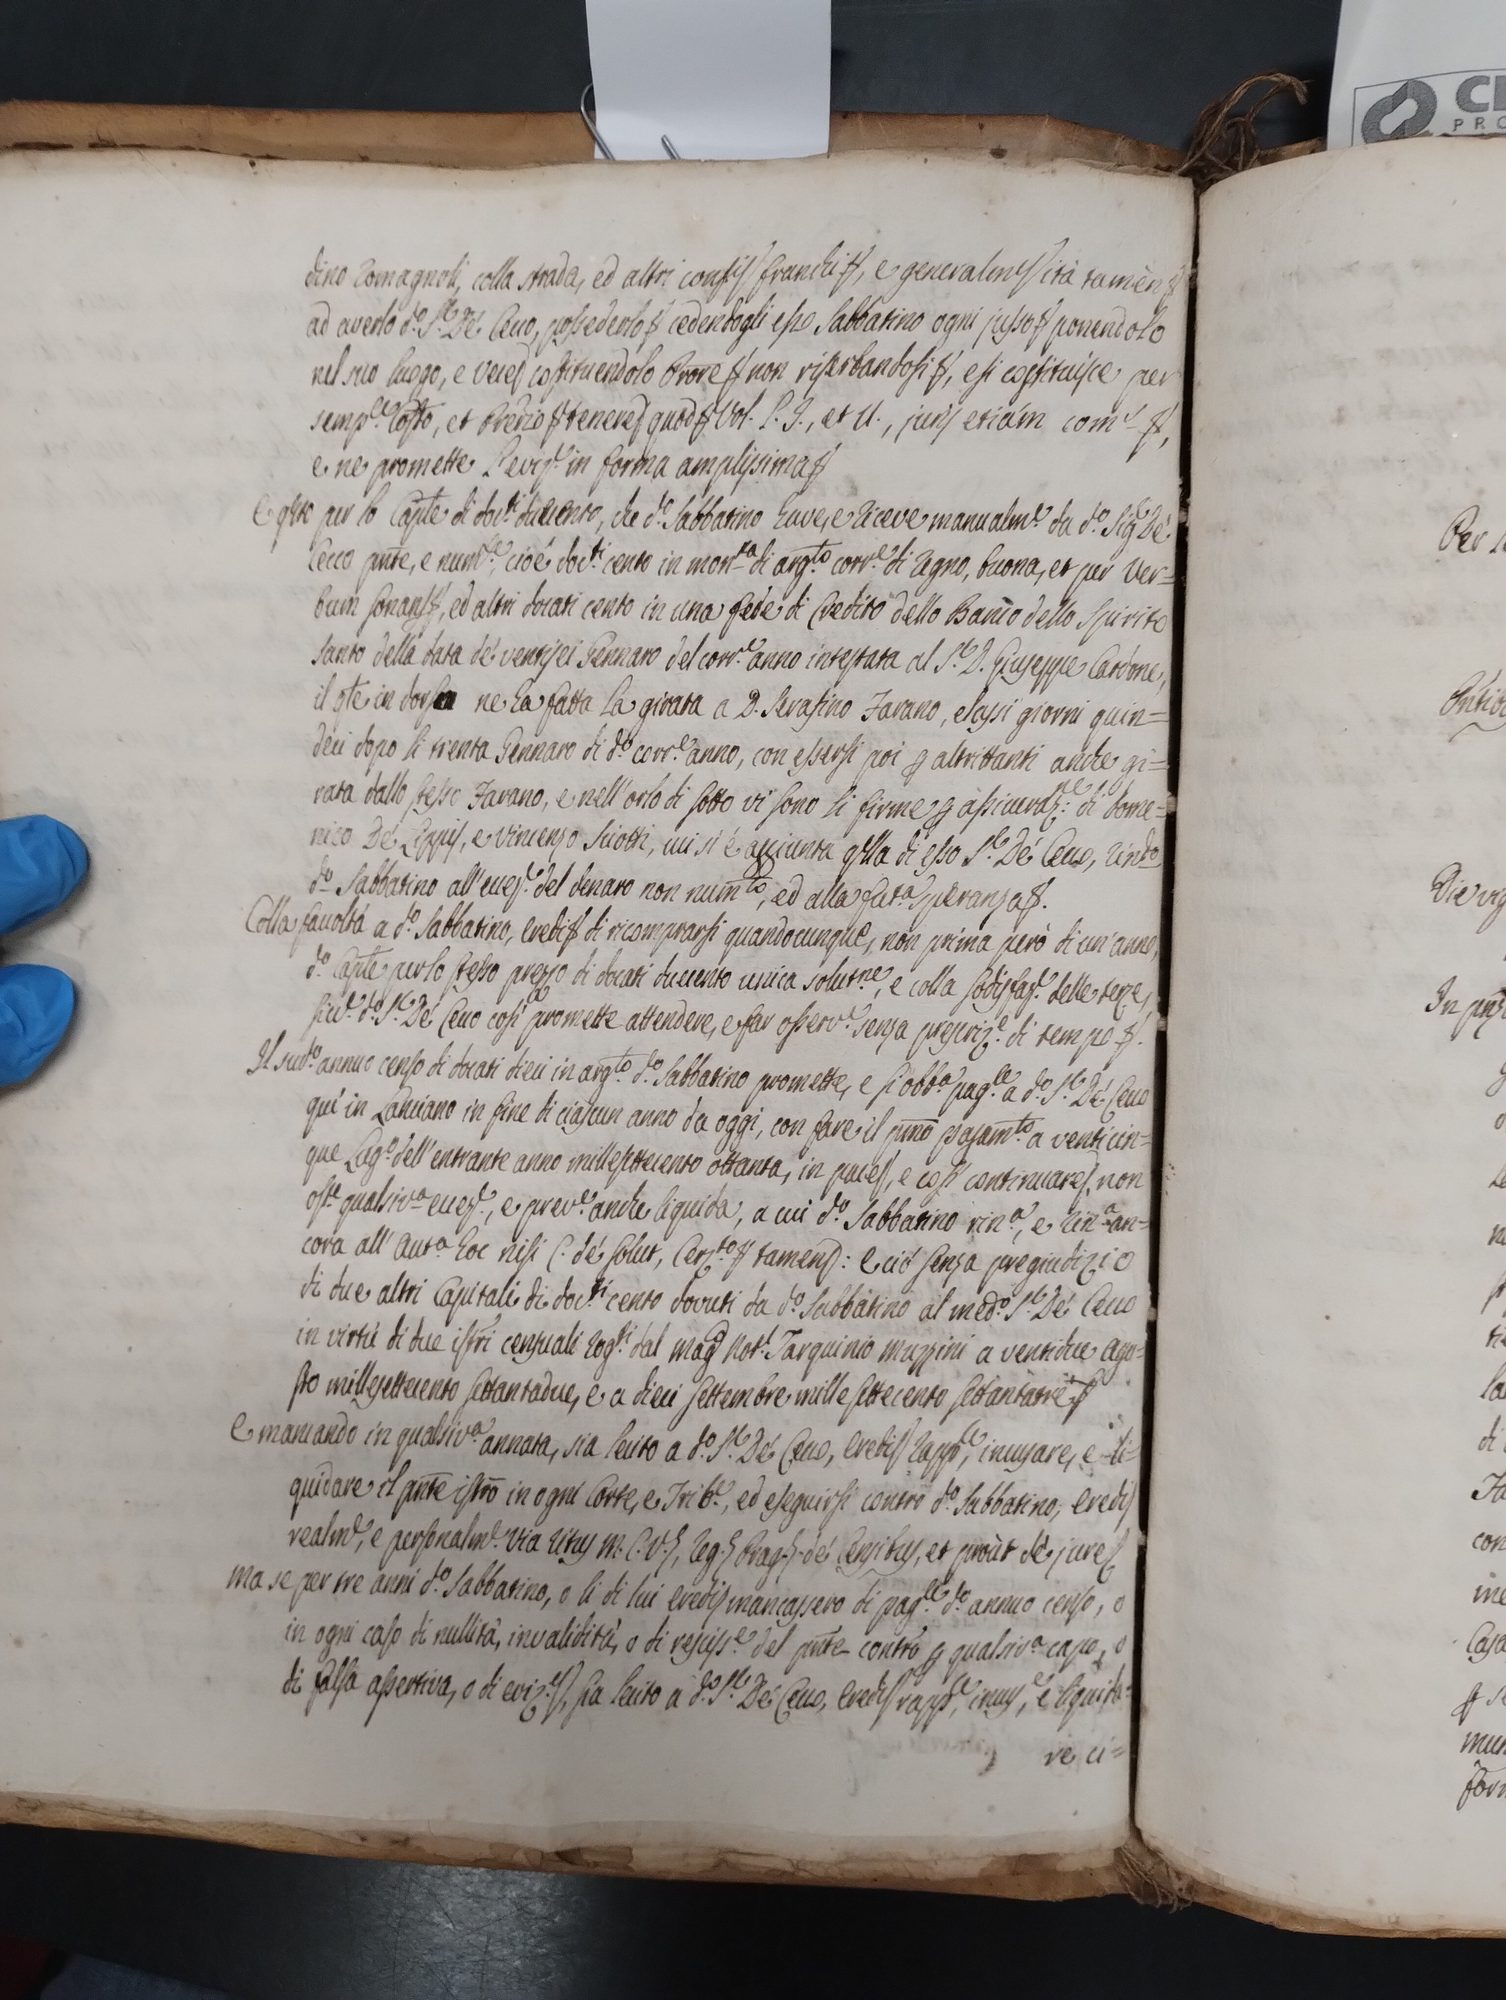 dino Romagnoli, colla strada, ed altri confis franchi, e generalmes ità tamen
ad averlo d.o S.r De' Cecco, possederlo cedendogli esso Sabbatino ogni jusso ponendolo
nel suo luogo, e veces costituendolo Prore non riserbandosi, e si costituisce per
semp.e Costo, et Predio tenere quod Vol. C. I., et U., juris etiam com.
e ne promette l'eviz.e in forma amplissima
E qsto per lo Caple di doc.ti ducento, che d.o Sabbatino have, e riceve manualm.e da d.o Sig.r De'
Cecco pnte, e num.te, cioè doc.ti cento in mon.ta di arg.to corr.e di Regno, buona, et per ver=
bum sonans, ed altri docati cento in una fede di Credito dello Banco dello Spirito
Santo della data de' ventisei Gennaro del corr.e anno intestata al S.r D. Giuseppe Cardone,
il qle in dorso ne ha fatta la girata a D. Serafino Farano, elassi giorni quin=
deci dopo li trenta Gennaro di d.o corr.e anno, con essersi poi p altrittanti anche gi=
rata dallo stesso Farano, e nell'orlo di sotto vi sono li firme p assicuraz.e: di Dome=
nico De' Leppis, e Vincenzo Sciotti, cui si è aggiunta qlla di esso S.r De' Cecco, rindo
d.o Sabbatino all'ecces.e del denaro non num.to, ed alla fut.a speranza.
Colla facoltà a d.o Sabbatino, eredi di ricomprarsi quandocunque, non prima però di un'anno,
d.o Caple per lo stesso prezzo di docati ducento unica solut.ne, e colla sodisfaz.e delle terze,
sic.e d.o S.r De' Cecco così promette attendere, e far osserv.e senza prescriz.e di tempo.
Il sud.o annuo censo di docati dieci in arg.to d.o Sabbatino promette, e si obb.a pag.le a d.o S.r De' Cecco
qui in Lanciano in fine di ciascun anno da oggi, con fare il pmo pagam.to a venticin=
que Lug.o dell'entrante anno millesettecento ottanta, in paces, e così continuares, non
ost.e qualsiv.a ecces.e, e prev.e anche liquida, a cui d.o Sabbatino rin.a, e rin.a an=
cora all'Aut.a hoc nisi C. de' Solut, Cerz.to tamens: e ciò senza pregiudizio
di due altri Capitali di doc.ti cento dovuti da d.o Sabbatino al med.o S.r De' Cecco
in virtù di due istri censuali rog.ti dal mag.o Not.r Tarquinio Muzzini a ventidue Ago=
sto millesettecento settantadue, e a dieci Settembre mille settecento settantatre
E mancando in qualsiv.a annata, sia lecito a d.o S.r De' Cecco, eredis rapp.le, incusare, e li=
quidare il pnte istro in ogni Corte, e Trib.e, ed eseguirsi contro d.o Sabbatino, eredis
realm.e, e personalm.e via ritus M. C. V., Reg. Prag. de' Censibus, et prout de jure
ma se per tre anni d.o Sabbatino, o li di lui eredis mancassero di pag.le d.o annuo censo, o
in ogni caso di nullità, invalidità, o di resciss.e del pnte contro p qualsiv.a capo, o
di falsa assertiva, o di eviz.es, sia lecito a d.o S.r De' Cecco, eredis rapp.le, incus.e, e liquida=
re ci=